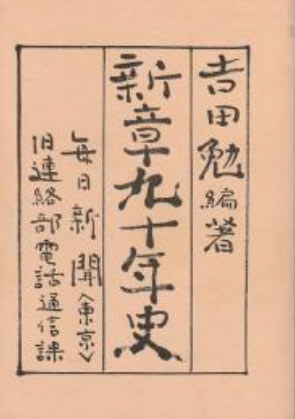 吉田勉編著
新章九十年史
毎日新聞〈東京〉
旧連絡部電話通信課